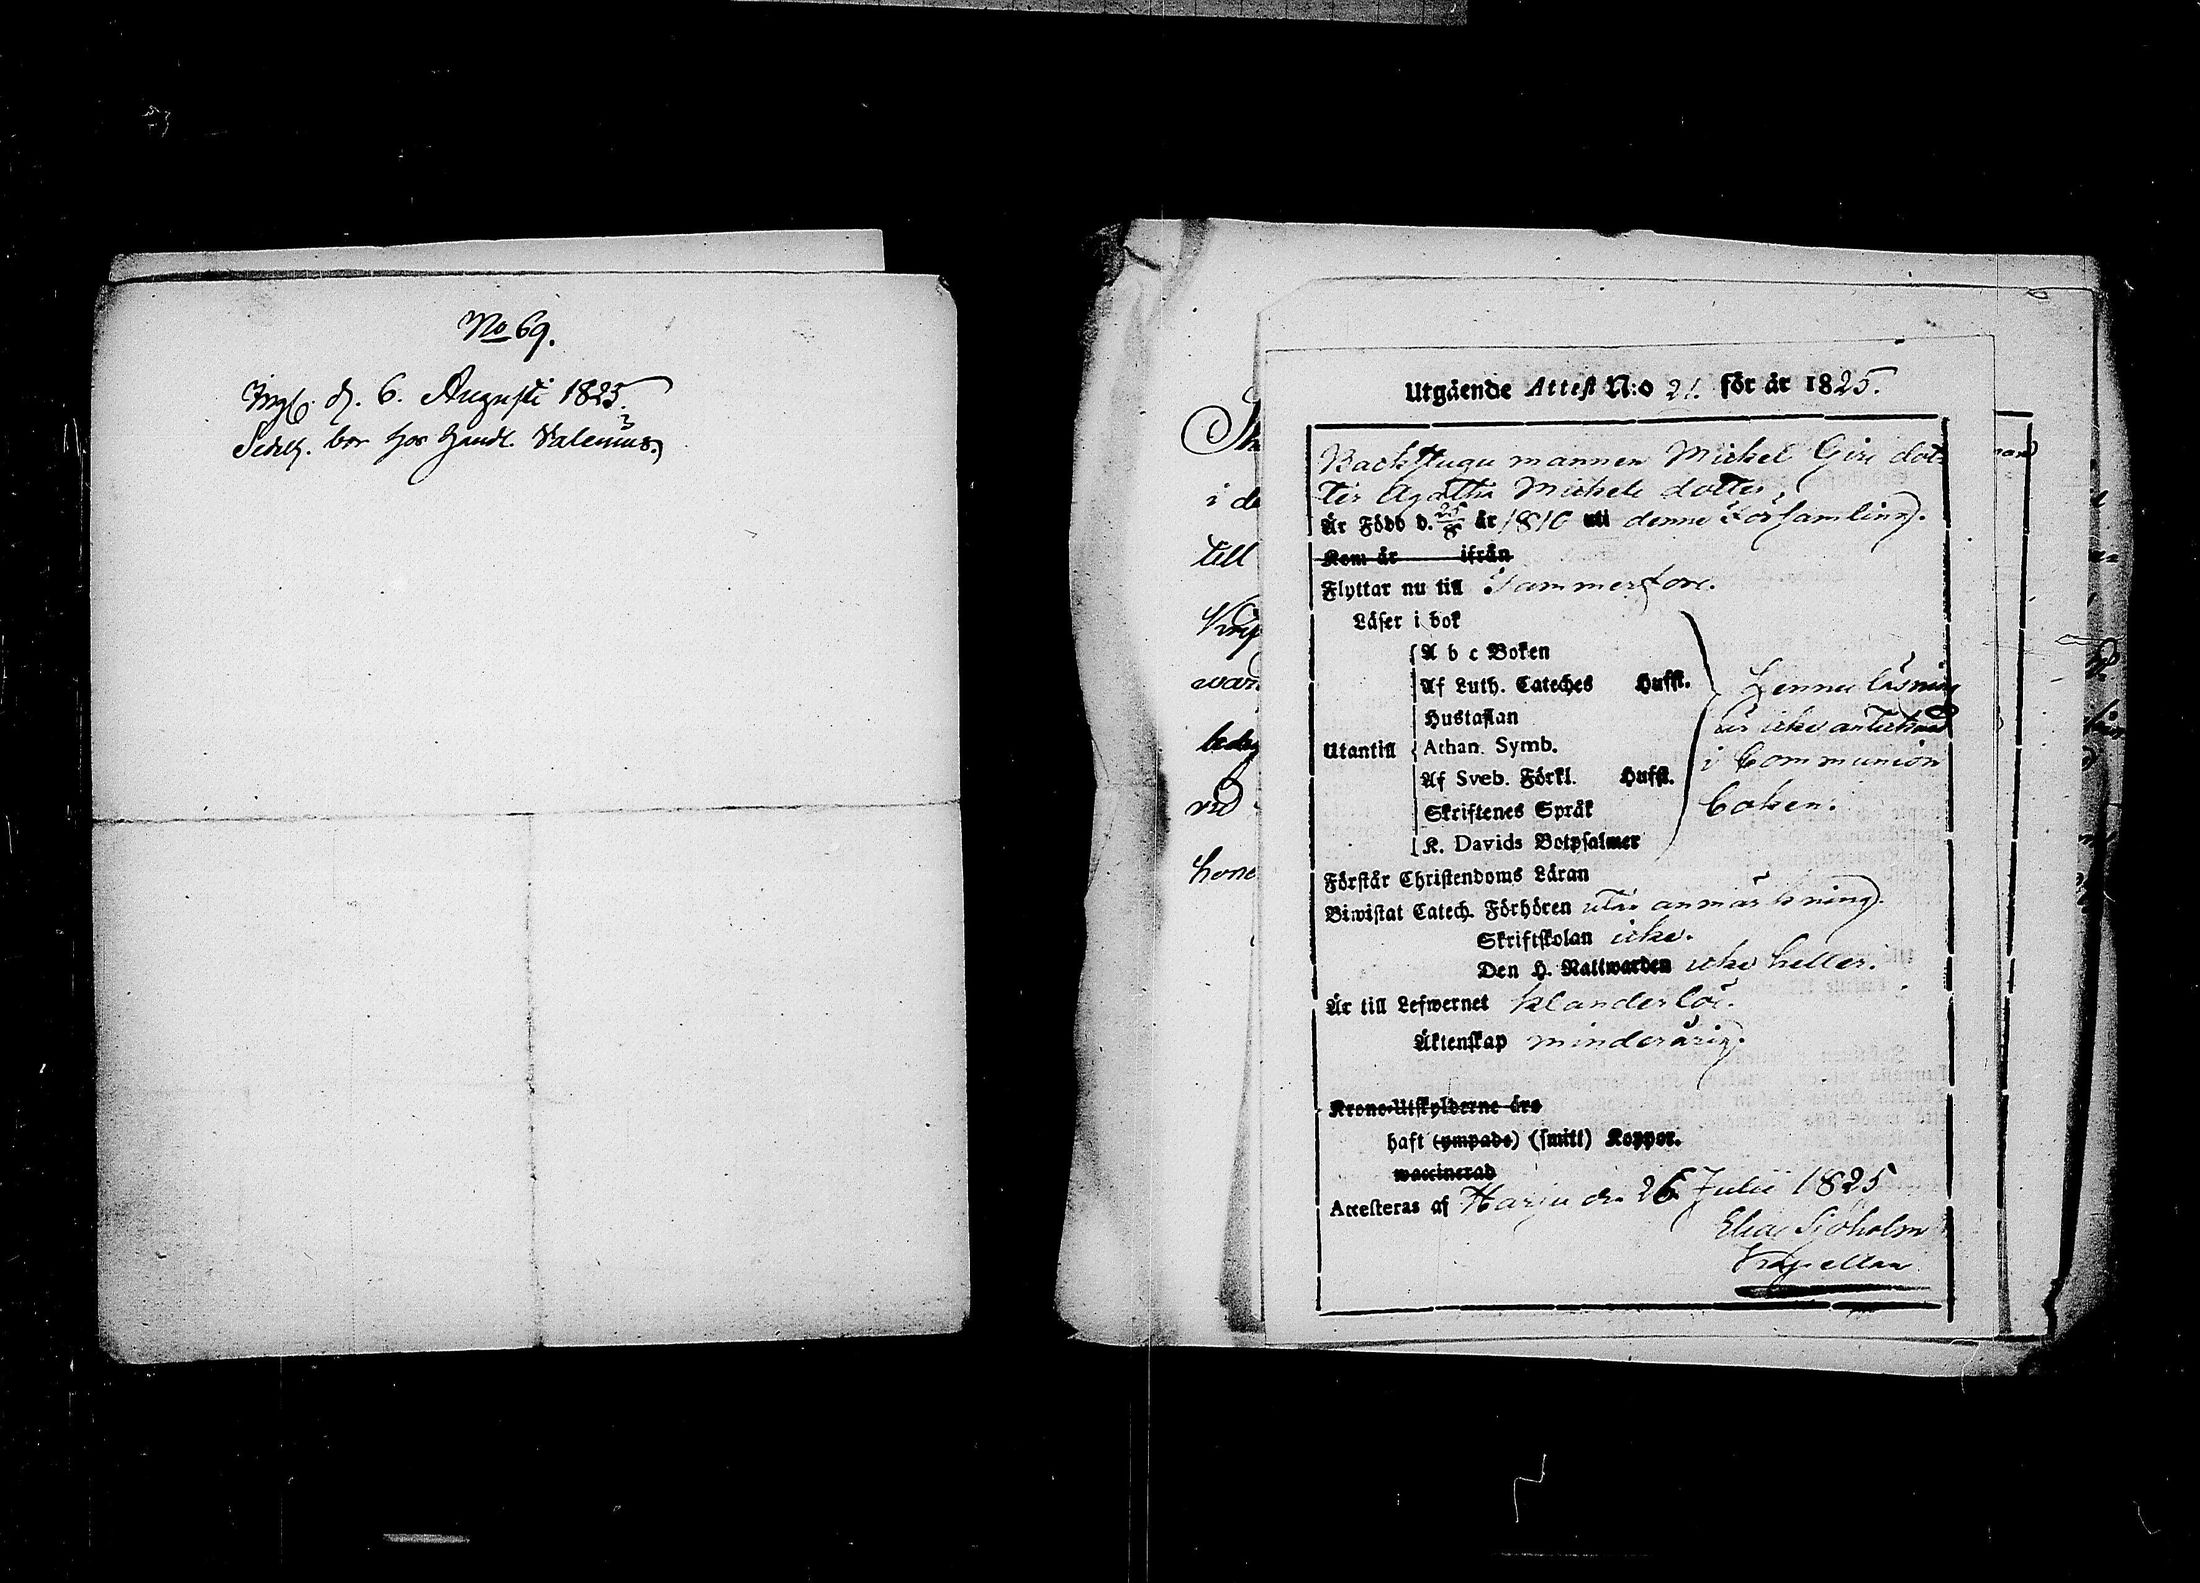 No 69.
Ingl. d. 6. Augusti 1825.
bor hos Handl. Valenius.
Utgående Attest N:o 21. för år 1825.
Backstugu mannen Michel Girs dot-
ter Agatha Michels dotter,
Är Född d. 25/8 år 1810 uti denne Församling.
Kom år ifrån
Flyttar nu till Tammerfors.
Läser i bok
A b c Boken
Af Luth. Cateches Hufft.
Hustaflan
Utantill Athan. Symb.
Af Sveb. Förkl. Hufft.
Skriftenes Språk
K. Davids Botpsalmer
Hennes läsning
är icke antecknad
i Communion
boken.
Förstår Christendoms Läran
Biwistat Catech. Förhören utan anmärkning.
Skriftskolan icke.
Den H. Nattwarden icke heller.
Är till Lefwernet klanderlös.
Äktenskap minderårig.
Krono-Utskylderne års
haft (ympade) (smitt) Koppor.
waccinerad
Attesteras af Harju d. 26 Julii 1825
Elias Sjöholm
Kapellan
i de
till
wan
ved
hone